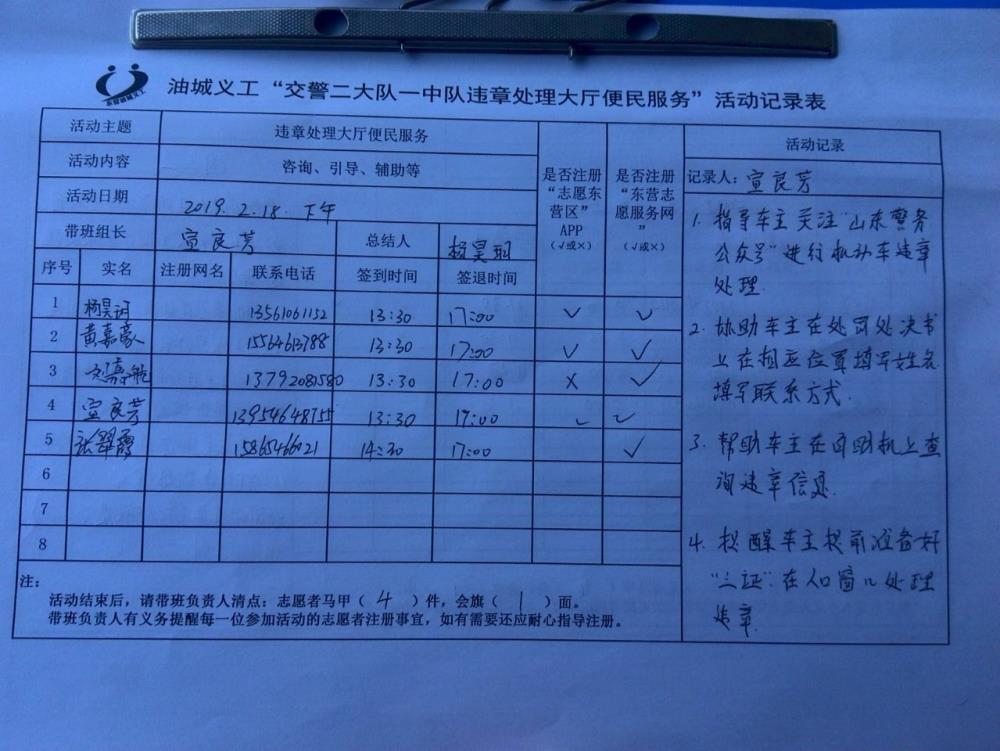 油城义工“交警二大队一中队违章处理大厅便民服务”活动记录表
活动主题 违章处理大厅便民服务
活动内容 咨询、引导、辅助等
活动日期 2019.2.18.下午
带班组长 宣良芳 总结人 杨昊
是否注册“志愿东营区”APP（√或×）
是否注册“东营志愿服务网”（√或×）
序号 实名 注册网名 联系电话 签到时间 签退时间
1 杨昊 13561061152 13:30 17:00 √ √
2 黄嘉豪 1556461 788 13:30 17:00 √ √
3 13792081580 13:30 17:00 × √
4 宣良芳 13954648755 13:30 17:00 √ √
5 张翠霞 14:30 17:00 √
6
7
8
注：
活动结束后，请带班负责人清点：志愿者马甲（ 4 ）件，会旗（ 1 ）面。
带班负责人有义务提醒每一位参加活动的志愿者注册事宜，如有需要还应耐心指导注册。
活动记录
记录人：宣良芳
1. 指导车主关注“山东警务
公众号”进行机动车违章
处理.
2. 协助车主在处罚处决书
上在相应位置填写姓名
填写联系方式.
3. 帮助车主在自助机上查
询违章信息.
4. 提醒车主提前准备好
“三证”在人口窗儿处理
违章.